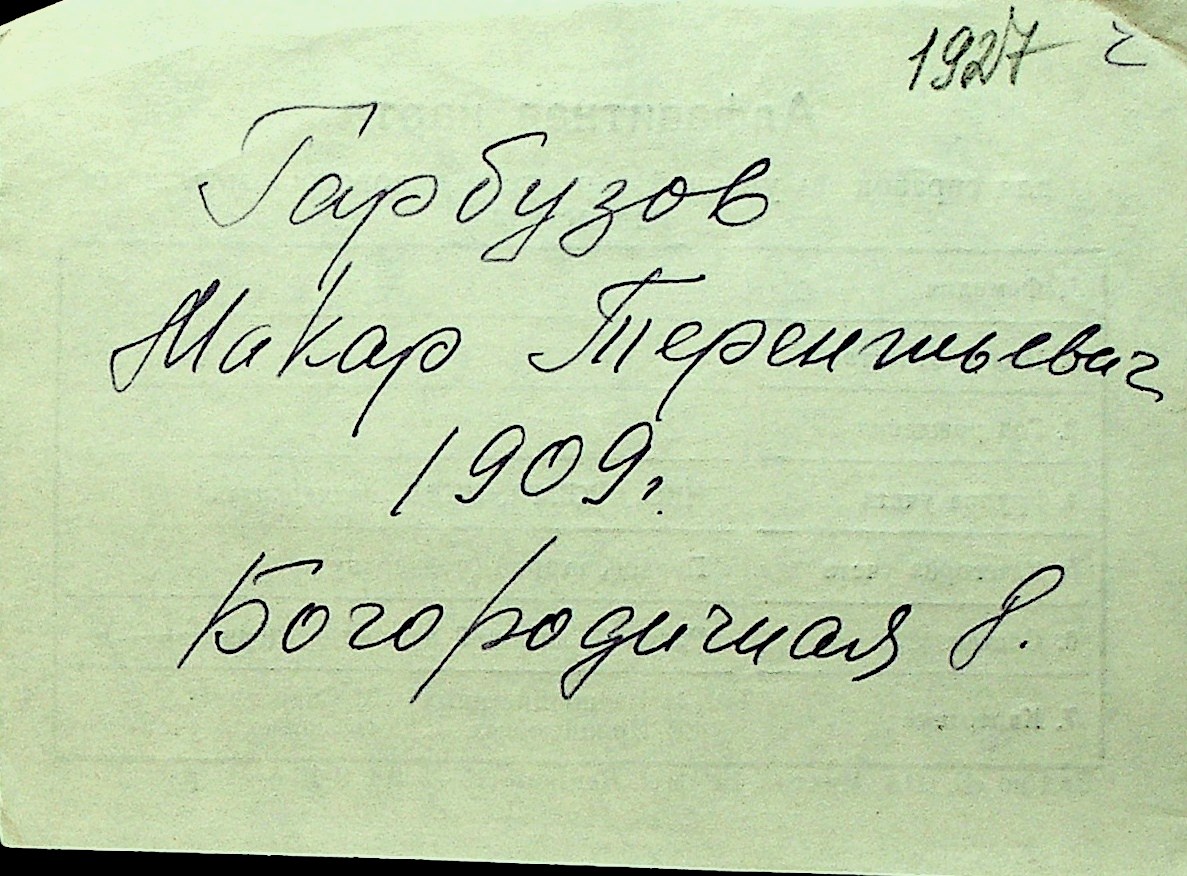 1927 г
Гарбузов
Макар Терентьевич
1909г.
Богородичная д.